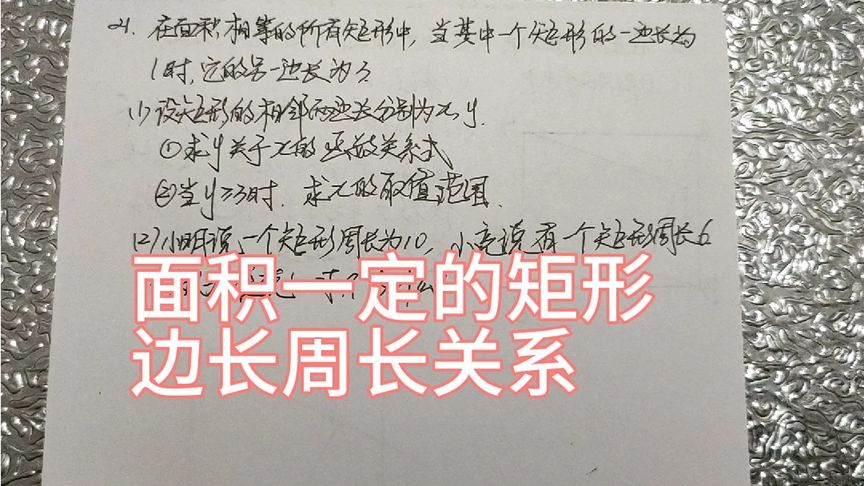 21. 在面积相等的所有矩形中, 当其中一个矩形的一边长为
1时, 它的另一边长为3
(1) 设矩形的相邻两边长分别为x, y.
①求y关于x的函数关系式
②当y≥3时, 求x的取值范围.
(2) 小明说一个矩形周长为10, 小亮说有一个矩形周长6
面积一定的矩形
边长周长关系